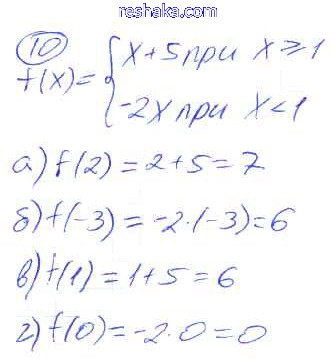 reshaka.com
10
f(x) = { x+5 при x ≥ 1
-2x при x < 1
а) f(2) = 2+5 = 7
б) f(-3) = -2·(-3) = 6
в) f(1) = 1+5 = 6
г) f(0) = -2·0 = 0